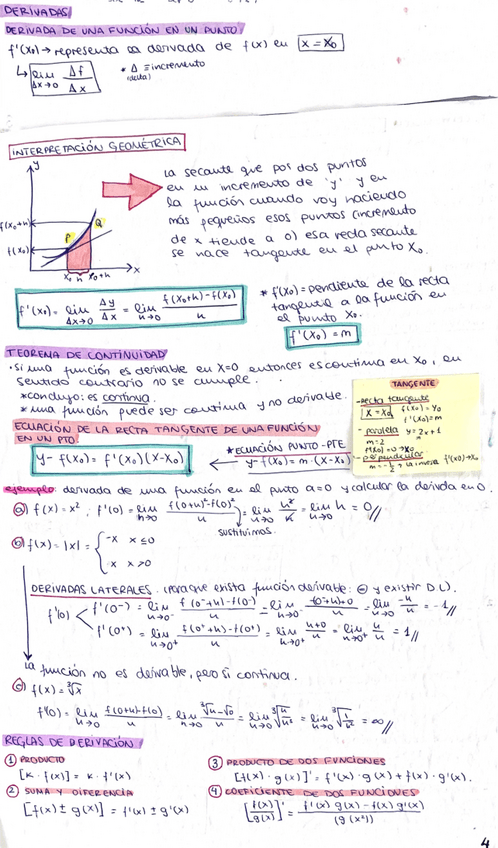 DERIVADAS
DERIVADA DE UNA FUNCIÓN EN UN PUNTO
f'(x₀) → representa la derivada de f(x) en x = x₀
↳ lim Δx→0 Δf/Δx
* Δ = incremento
(delta)
INTERPRETACIÓN GEOMÉTRICA
y
f(x₀+h)
f(x₀)
P
Q
x₀ h x₀+h
x
La secante que pos dos puntos
en un incremento de 'y' y en
la función cuando voy haciendo
más pequeños esos puntos (incremento
de x tiende a 0) esa recta secante
se hace tangente en el punto x₀.
f'(x₀) = lim Δx→0 Δy/Δx = lim h→0 f(x₀+h)-f(x₀)/h
* f'(x₀) = pendiente de la recta
tangente a la función en
el punto x₀.
f'(x₀) = m
TEOREMA DE CONTINUIDAD
• Si una función es derivable en x=0 entonces es continua en x₀, en
sentido contrario no se cumple.
* concluyo: es continua.
* una función puede ser continua y no derivable.
TANGENTE
- recta tangente
x = x₀ f(x₀) = y₀
f'(x₀) = m
- paralela y = 2x+1
m = 2
- perpendicular
ECUACIÓN DE LA RECTA TANGENTE DE UNA FUNCIÓN
EN UN PTO.
y - f(x₀) = f'(x₀)(x-x₀)
* ECUACIÓN PUNTO-PTE
y - f(x₀) = m · (x-x₀)
ejemplo: derivada de una función en el punto a=0 y calcular la derivada en 0.
a) f(x) = x², f'(0) = lim h→0 f(0+h)-f(0)/h = lim h→0 h²/h = lim h→0 h = 0//
sustituimos.
b) f(x) = |x| = { -x x ≤ 0
x x > 0
DERIVADAS LATERALES. (para que exista función derivable: = y existir D.L).
f'(0) < f'(0⁻) = lim h→0⁻ f(0⁻+h)-f(0⁻)/h = lim h→0⁻ -(0+h)+0/h = lim h→0⁻ -h/h = -1//
f'(0⁺) = lim h→0⁺ f(0⁺+h)-f(0⁺)/h = lim h→0⁺ h+0/h = lim h→0⁺ h/h = 1//
La función no es derivable, pero sí continua.
c) f(x) = ∛x
f'(0) = lim h→0 f(0+h)-f(0)/h = lim h→0 ∛h-√0/h = lim h→0 ∛h/h³ = lim h→0 ∛1/h² = ∞//
REGLAS DE DERIVACIÓN
① PRODUCTO
[k · f(x)] = k · f'(x)
② SUMA Y DIFERENCIA
[f(x) ± g(x)] = f'(x) ± g'(x)
③ PRODUCTO DE DOS FUNCIONES
[f(x) · g(x)]' = f'(x) · g(x) + f(x) · g'(x).
④ COEFICIENTE DE DOS FUNCIONES
[f(x)/g(x)]' = f'(x) g(x) - f(x) g'(x)/(g(x²))
4